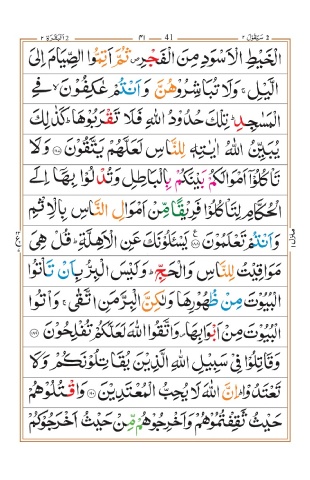 البقرة ٢ ٣١ 41 سيقول ٢
الْخَيْطِ الْاَسْوَدِ مِنَ الْفَجْرِ ص ثُمَّ اَتِمُّوا الصِّيَامَ اِلَى
الَّيْلِ ج وَلَا تُبَاشِرُوْهُنَّ وَاَنْتُمْ عٰكِفُوْنَ لا فِي
الْمَسٰجِدِ ط تِلْكَ حُدُوْدُ اللّٰهِ فَلَا تَقْرَبُوْهَا ط كَذٰلِكَ
يُبَيِّنُ اللّٰهُ اٰيٰتِهٖ لِلنَّاسِ لَعَلَّهُمْ يَتَّقُوْنَ ﴿١٨٧﴾ وَلَا
تَاْكُلُوْٓا اَمْوَالَكُمْ بَيْنَكُمْ بِالْبَاطِلِ وَتُدْلُوْا بِهَآ اِلَى
الْحُكَّامِ لِتَاْكُلُوْا فَرِيْقًا مِّنْ اَمْوَالِ النَّاسِ بِالْاِثْمِ
وَاَنْتُمْ تَعْلَمُوْنَ ﴿١٨٨﴾ يَسْـَٔلُوْنَكَ عَنِ الْاَهِلَّةِ ط قُلْ هِيَ
مَوَاقِيْتُ لِلنَّاسِ وَالْحَجِّ ط وَلَيْسَ الْبِرُّ بِاَنْ تَاْتُوا
الْبُيُوْتَ مِنْ ظُهُوْرِهَا وَلٰكِنَّ الْبِرَّ مَنِ اتَّقٰى ج وَاْتُوا
الْبُيُوْتَ مِنْ اَبْوَابِهَا ص وَاتَّقُوا اللّٰهَ لَعَلَّكُمْ تُفْلِحُوْنَ ﴿١٨٩﴾
وَقَاتِلُوْا فِيْ سَبِيْلِ اللّٰهِ الَّذِيْنَ يُقَاتِلُوْنَكُمْ وَلَا
تَعْتَدُوْا ط اِنَّ اللّٰهَ لَا يُحِبُّ الْمُعْتَدِيْنَ ﴿١٩٠﴾ وَاقْتُلُوْهُمْ
حَيْثُ ثَقِفْتُمُوْهُمْ وَاَخْرِجُوْهُمْ مِّنْ حَيْثُ اَخْرَجُوْكُمْ